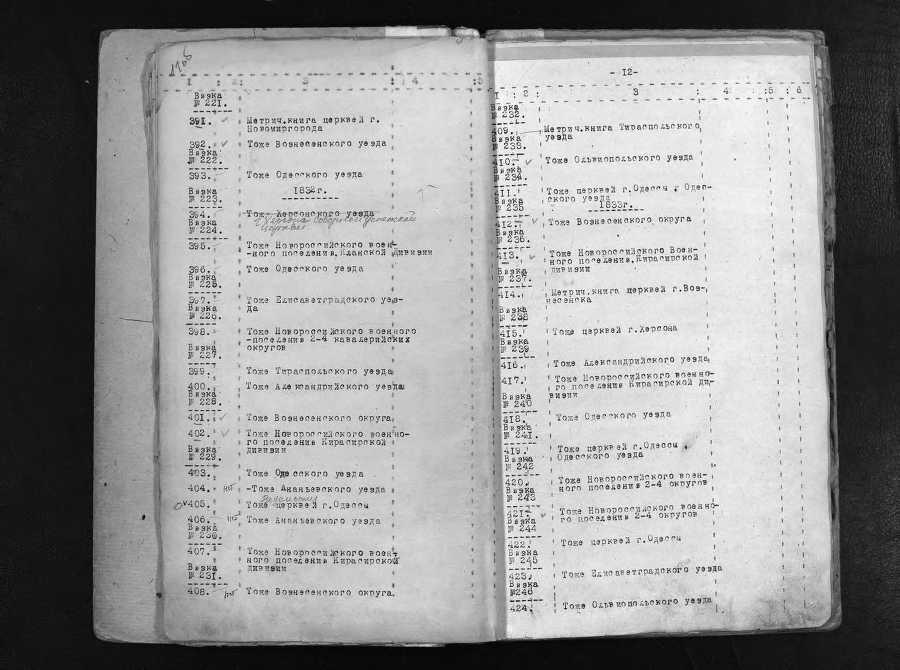 1 : 2: 3 4 :5
Вязка
№ 221.
391. Метрич.книга церквей г.
Новомиргорода
392. Тоже Вознесенского уезда
Вязка
№ 222.
393. Тоже Одесского уезда
1832г.
Вязка
№ 223.
394. Тоже Херсонского уезда
Вязка
№ 224.
395. Тоже Новороссийского воен-
-ного поселения, Уланской дивизии
396. Тоже Одесского уезда
Вязка
№ 225.
397. Тоже Елисаветградского уез-
да
Вязка
№ 226.
398. Тоже Новороссийского военного
-поселения 2-4 кавалерийских
округов
Вязка
№ 227.
399. Тоже Тираспольского уезда
400. Тоже Александрийского уезда
Вязка
№ 228.
401. Тоже Вознесенского округа
402. Тоже Новороссийского военно-
го поселение Кирасирской
дивизии
Вязка
№ 229.
403. Тоже Одесского уезда
404. -Тоже Ананьевского уезда
405. Тоже церквей г.Одессы
406. Тоже Ананьевского уезда
Вязка
№ 230.
407. Тоже Новороссийского воен-
ного поселения Кирасирской
дивизии
Вязка
№ 231.
408. Тоже Вознесенского округа.
- 12-
1 : 2 : 3 : 4 :5 : 6
Вязка
№ 232.
409. Метрич.книга Тираспольского
уезда
Вязка
№ 233.
410. Тоже Ольвиопольского уезда
Вязка
№ 234.
411. Тоже церквей г.Одессы , Одес-
ского уезда
Вязка
№ 235
1833г.
412. Тоже Вознесенского округа
Вязка
№ 236.
413. Тоже Новороссийского Воен-
ного поселения, Кирасирской
дивизии
Вязка
№ 237.
414. Метрич.книга церквей г.Воз-
несенска
Вязка
№ 238
415. Тоже церквей г.Херсона
Вязка
№ 239
416. Тоже Александрийского уезда
417. Тоже Новороссийского военно-
го поселение Кирасирской ди-
визии
Вязка
№ 240
418. Тоже Одесского уезда
Вязка
№ 241.
419. Тоже церквей г.Одессы ,
Одесского уезда
Вязка
№ 242
420. Тоже Новороссийского воен-
ного поселения 2-4 округов
Вязка
№ 243
421. Тоже Новороссийского военно-
го поселения 2-4 округов
Вязка
№ 244
422. Тоже церквей г.Одессы
Вязка
№ 245
423. Тоже Елисаветградского уезда
Вязка
№246
424. Тоже Ольвиопольского уезда